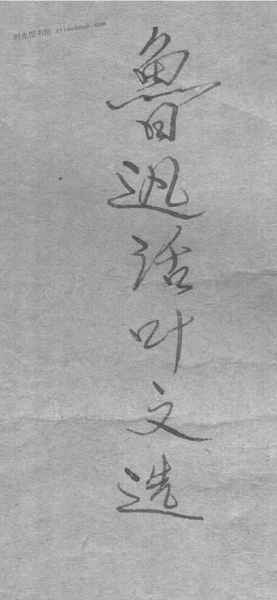 鲁迅活叶文选